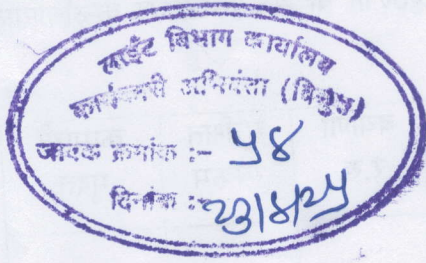 लाईट विभाग कार्यालय
कार्यकारी अभियंता (विद्युत)
जावक क्रमांक :- ५४
दिनांक : २३/४/२५